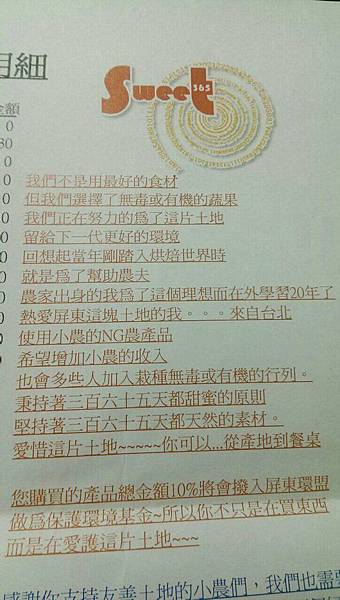 明細
Sweet
365
金額
0
30
0
0 我們不是用最好的食材
0 但我們選擇了無毒或有機的蔬果
0 我們正在努力的為了這片土地
0 留給下一代更好的環境
0 回想起當年剛踏入烘焙世界時
0 就是為了幫助農夫
0 農家出身的我為了這個理想而在外學習20年了
0 熱愛屏東這塊土地的我。。。來自台北
0 使用小農的NG農產品
希望增加小農的收入
也會多些人加入栽種無毒或有機的行列。
秉持著三百六十五天都甜蜜的原則
堅持著三百六十五天都天然的素材。
愛惜這片土地~~~~~你可以...從產地到餐桌
您購買的產品總金額10%將會撥入屏東環盟
做為保護環境基金~所以你不只是在買東西
而是在愛護這片土地~~~
感謝你支持友善土地的小農們，我們也需要